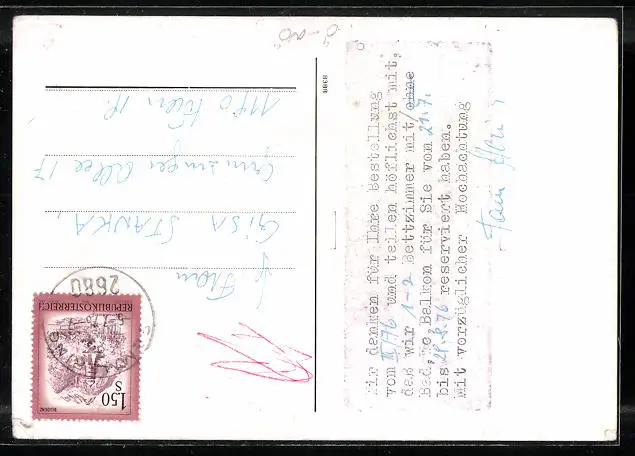 Wir danken für Ihre Bestellung
vom III/76 und teilen höflichst mit,
daß wir 1-2 Bettzimmer mit/ohne
Bad, WC, Balkon für Sie vom 21.7.
bis 28.8.76 reserviert haben.
Mit vorzüglicher Hochachtung
8388
GISA STANKA,
17
1170 Wien
2680
REPUBLIK ÖSTERREICH
BLUDENZ
S
1.50